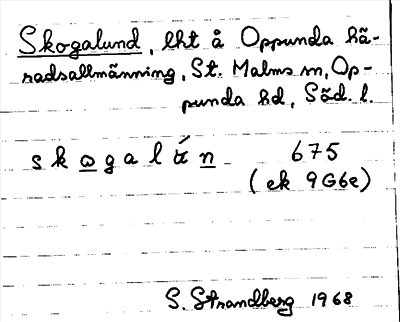 Skogalund, lht å Oppunda hä-
radsallmänning, St. Malms sn, Op-
punda hd, Söd. l.
skogalu̇́n 675
(ek 9G6e)
S. Strandberg 1968